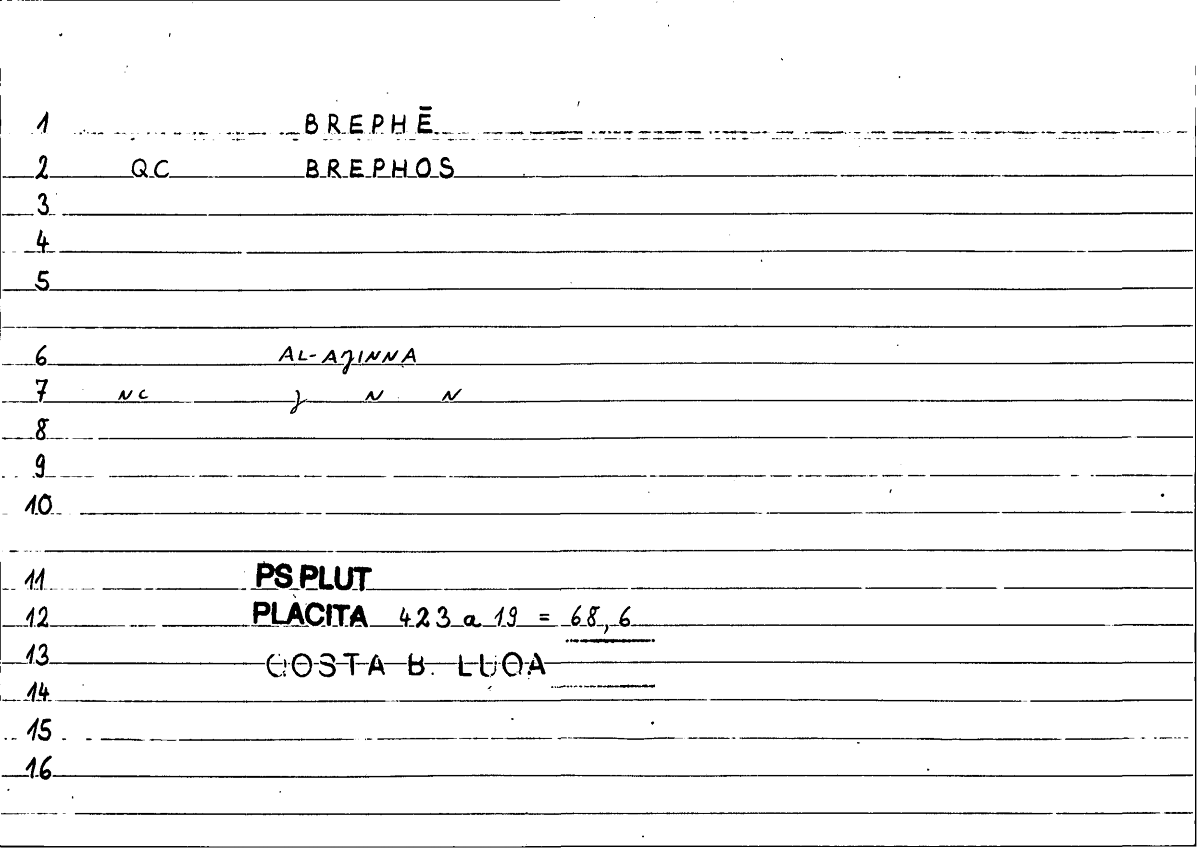 1 BREPHĒ
2 QC BREPHOS
3
4
5
6 AL-AJINNA
7 NC J N N
8
9
10
11 PS PLUT
12 PLACITA 423 a 19 = 68,6
13 COSTA B. LUQA
14
15
16